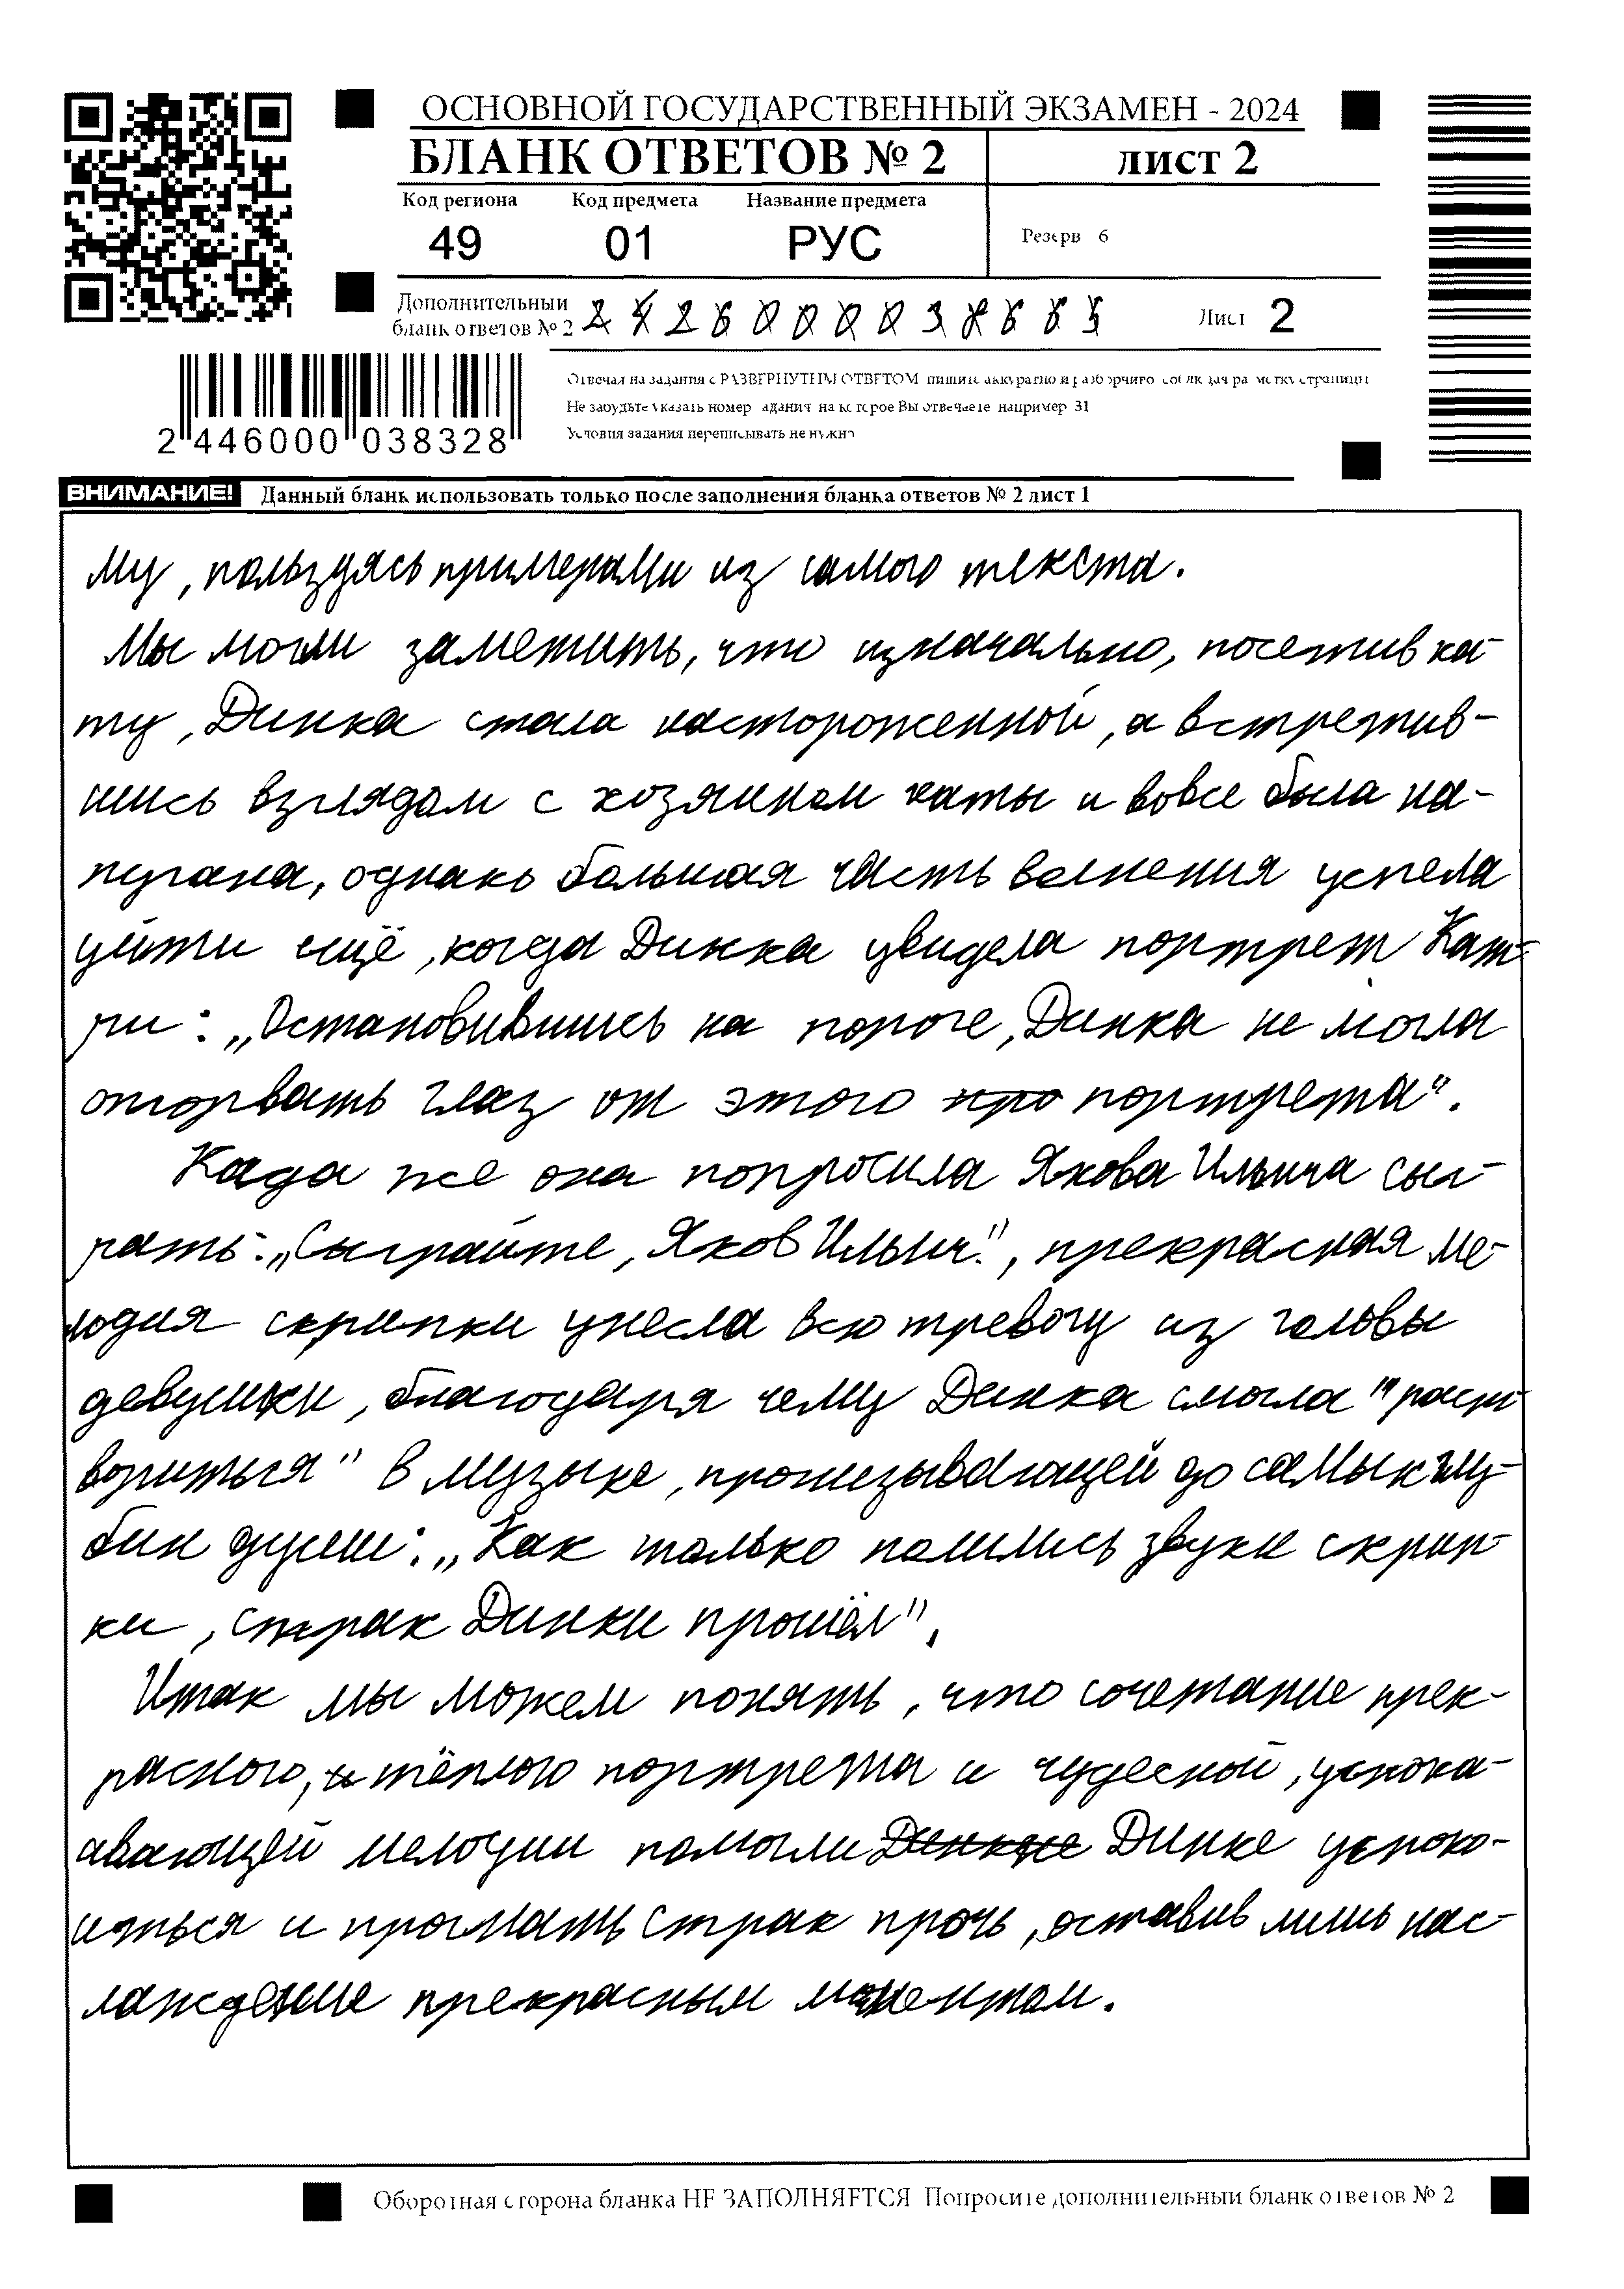 ОСНОВНОЙ ГОСУДАРСТВЕННЫЙ ЭКЗАМЕН - 2024
БЛАНК ОТВЕТОВ № 2 лист 2
Код региона Код предмета Название предмета
49 01 РУС Резерв 6
Дополнительный
бланк ответов № 2 Лист 2
Отвечая на задания с РАЗВЕРНУТЫМ ОТВЕТОМ пишите аккуратно и разборчиво соблюдая разметку страницы
Не забудьте указать номер задания на которое Вы отвечаете например 31
Условия задания переписывать не нужно
2 446000 038328
ВНИМАНИЕ! Данный бланк использовать только после заполнения бланка ответов № 2 лист 1
му, пользуясь примерами из самого текста.
Мы могли заметить, что изначально, посетив ха-
ту, Динка стала настороженной, а встретив-
шись взглядом с хозяином хаты и вовсе была на-
пугана, однако большая часть волнения успела
уйти ещё, когда Динка увидела портрет Кат-
ри: „Остановившись на пороге, Динка не могла
оторвать глаз от этого про портрета".
Када же она попросила Якова Ильича сыг-
рать: „Сыграйте, Яков Ильич!", прекрасная ме-
лодия скрипки унесла всю тревогу из головы
девушки, благодаря чему Динка смогла "раст
вориться" в музыке, пронизывающей до самых глу-
бин души: „Как только полились звуки скрип-
ки, страх Динки прошёл".
Итак мы можем понять, что сочетание прек-
расного, и тёплого портрета и чудесной, успока-
авающей мелодии помогли Динке успоко-
иться и прогнать страх прочь, оставив лишь нас-
лаждение прекрасным моментом.
Оборотная сторона бланка НЕ ЗАПОЛНЯЕТСЯ Попросите дополнительный бланк ответов № 2